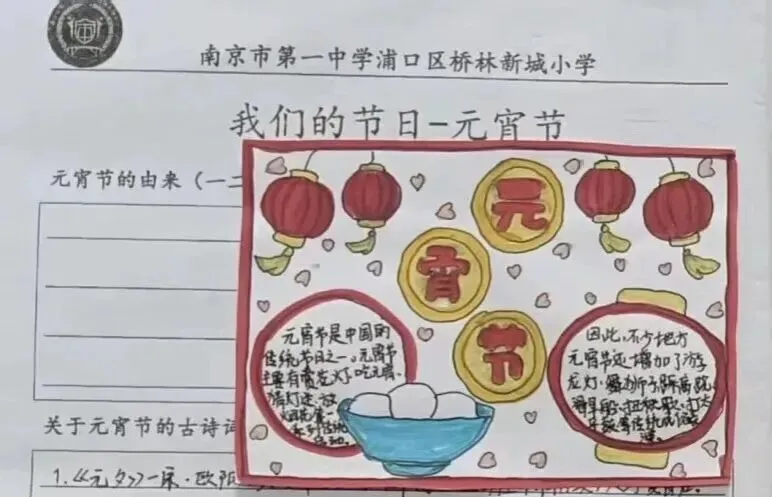 南京市第一中学浦口区桥林新城小学
我们的节日-元宵节
元宵节的由来（一二
元
宵
节
元宵节是中国的
传统节日之一。元宵节
主要有赏花灯、吃元宵、
猜灯谜、放
因此,不少地方
元宵节还增加了游
龙灯、舞狮子、踩高跷、
划旱船、扭秧歌、打太
关于元宵节的古诗词
1.《元夕》-宋·欧阳